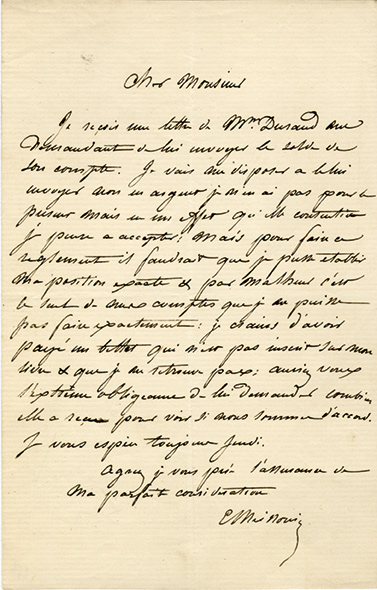 Cher Monsieur
Je reçois une lettre de Mme Durand me
demandant de lui envoyer le solde de
son compte. Je vais me disposer a le lui
envoyer non en argent je n'en ai pas pour le
mais en un effet qu'elle consentira
je pense a accepter. Mais pour faire ce
reglement il faudrait que je puisse etablir
ma position exacte & par malheur c'est
le seul de mes comptes que je ne puisse
pas faire exactement: je crains d'avoir
payé un billet qui n'est pas inscrit sur mon
livre & que je ne retrouve pas: auriez vous
l'extrême obligeance de lui demander combien
elle a reçu pour voir si nous sommes d'accord.
Je vous espere toujours Jeudi.
Agreez je vous prie l'assurance de
ma parfaite consideration
EMeissonier